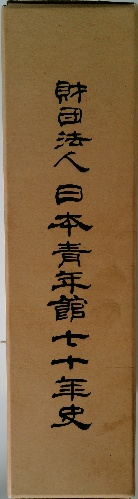 財団法人日本青年館七十年史